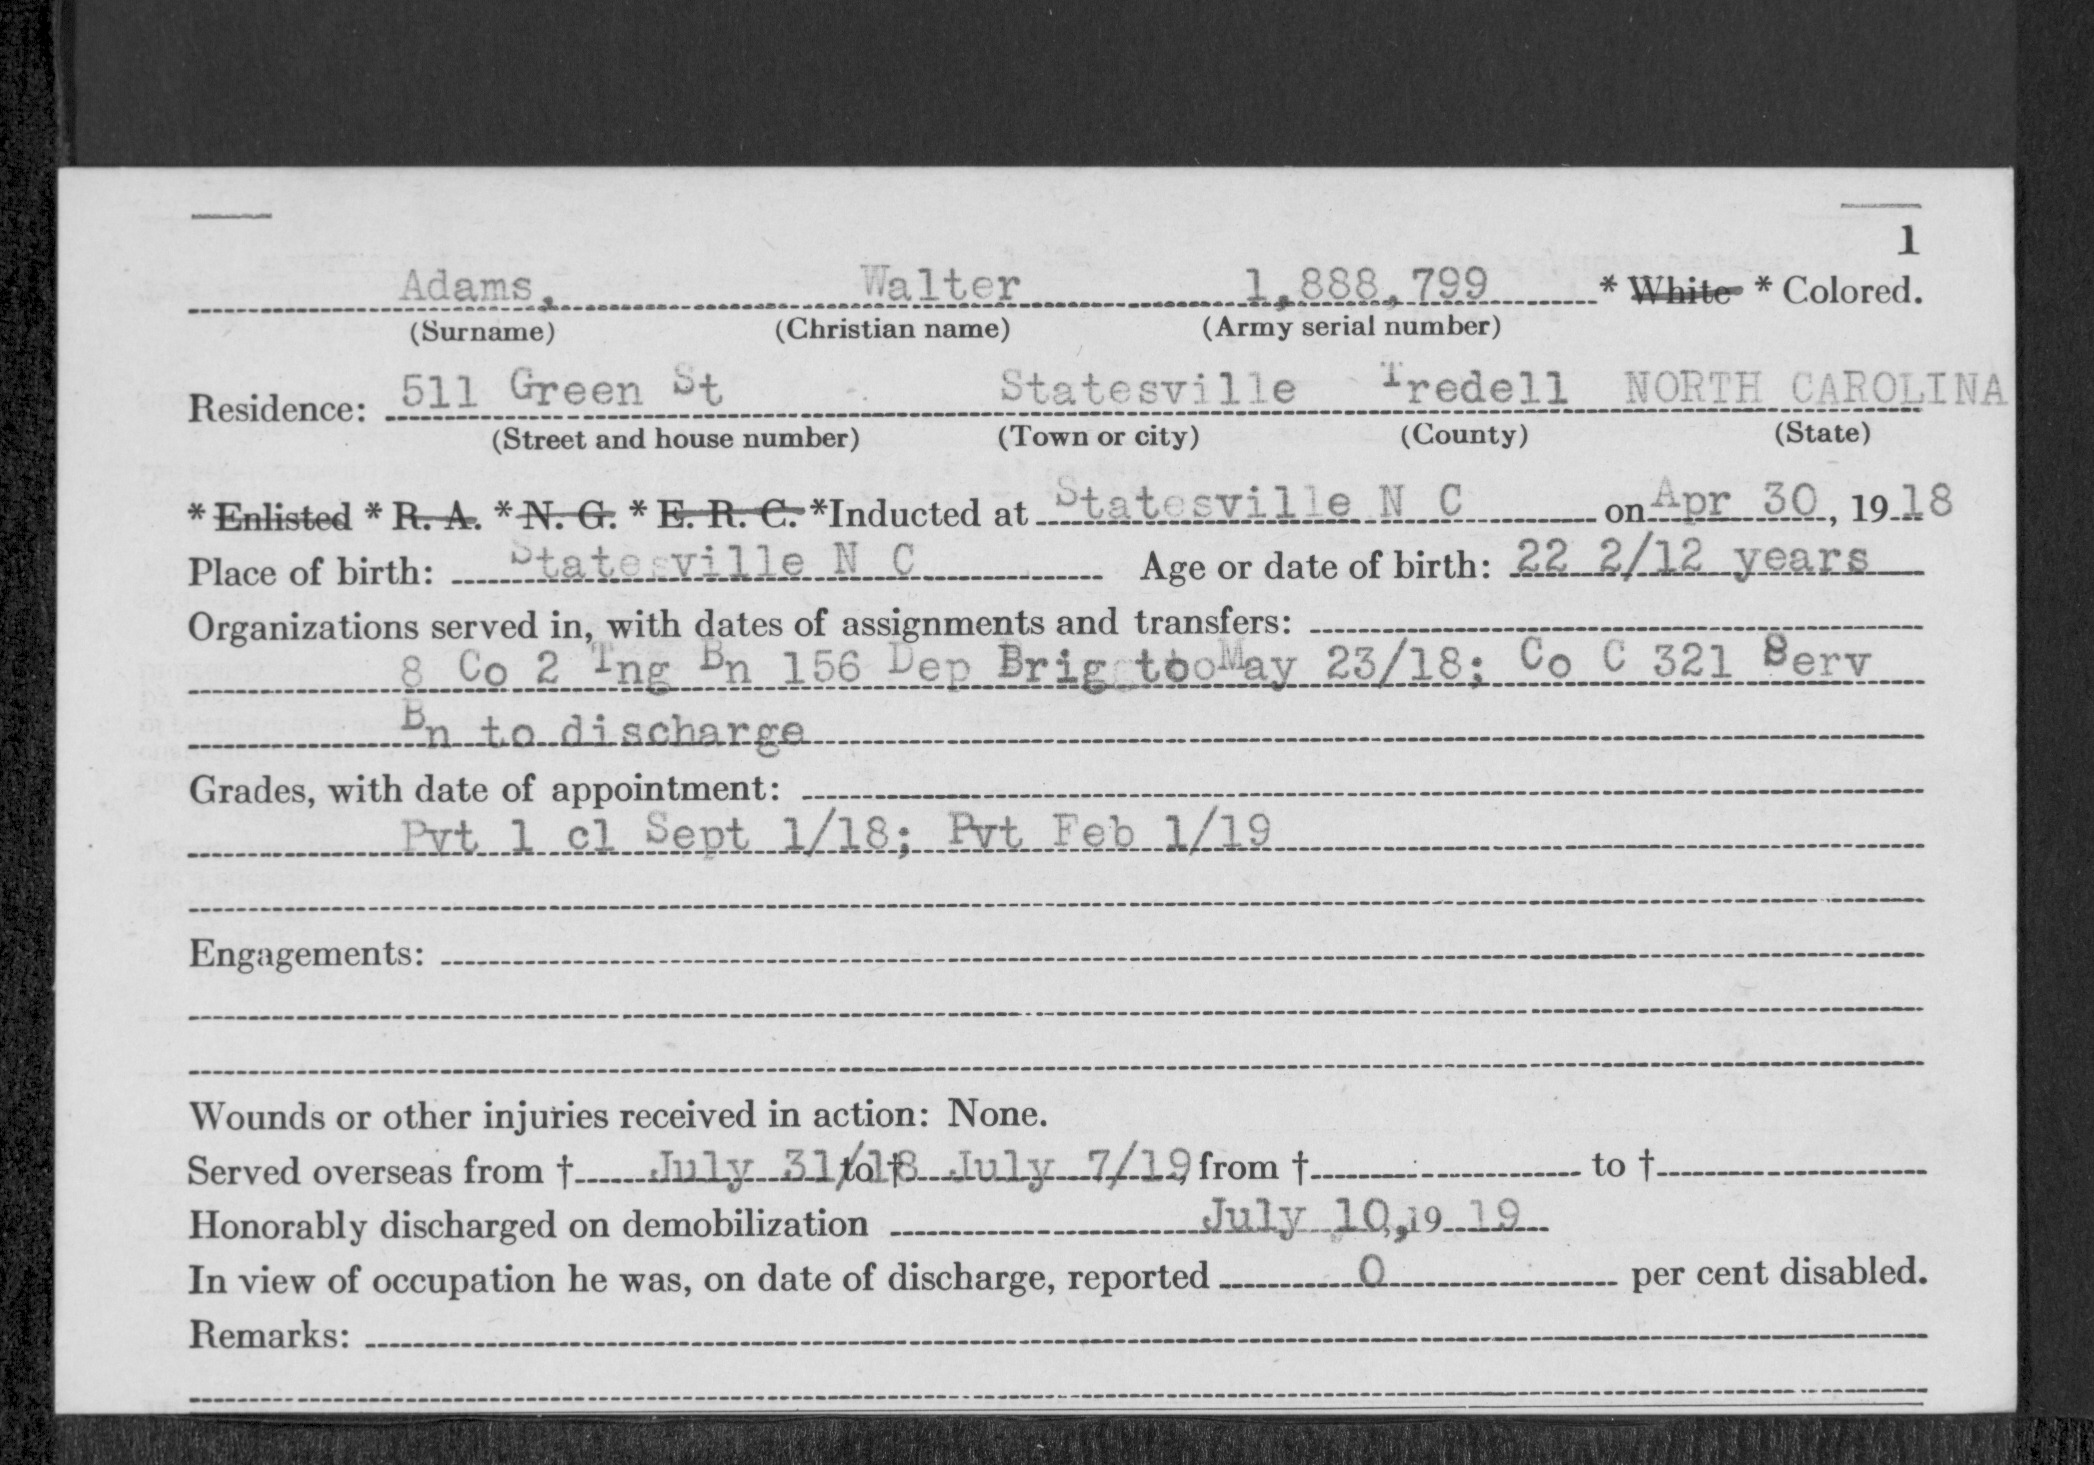 1
Adams, Walter 1,888,799 * White * Colored.
(Surname) (Christian name) (Army serial number)
Residence: 511 Green St Statesville Iredell NORTH CAROLINA
(Street and house number) (Town or city) (County) (State)
* Enlisted * R. A. * N. G. * E. R. C. *Inducted at Statesville N C on Apr 30, 1918
Place of birth: Statesville N C Age or date of birth: 22 2/12 years
Organizations served in, with dates of assignments and transfers:
8 Co 2 Tng Bn 156 Dep Brig to May 23/18; Co C 321 Serv
Bn to discharge
Grades, with date of appointment:
Pvt 1 cl Sept 1/18; Pvt Feb 1/19
Engagements:
Wounds or other injuries received in action: None.
Served overseas from † July 31/18 to † July 7/19, from † to †
Honorably discharged on demobilization July 10, 1919
In view of occupation he was, on date of discharge, reported 0 per cent disabled.
Remarks: